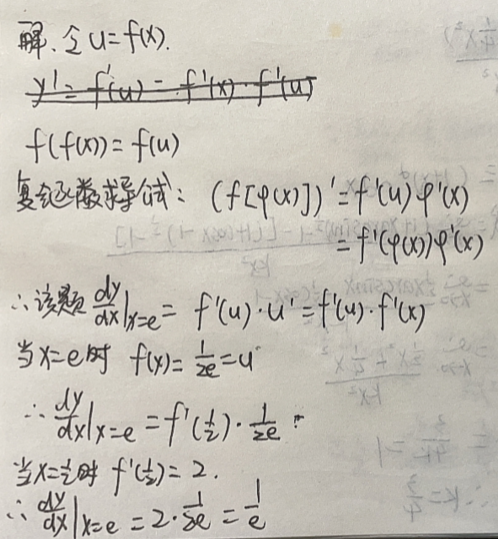 解.令u=f(x).
y'=f'(u)=f'(x)·f'(u)
f(f(x))=f(u)
复合函数求导公式: (f[φ(x)])'=f'(u)φ'(x)
=f'(φ(x))φ'(x)
∴该题dy/dx|x=e = f'(u)·u'=f'(u)·f'(x)
当x=e时 f(x)=1/2e=u
∴dy/dx|x=e =f'(1/2)·1/2e
当x=1/2时 f'(1/2)=2.
∴dy/dx|x=e =2·1/2e=1/e